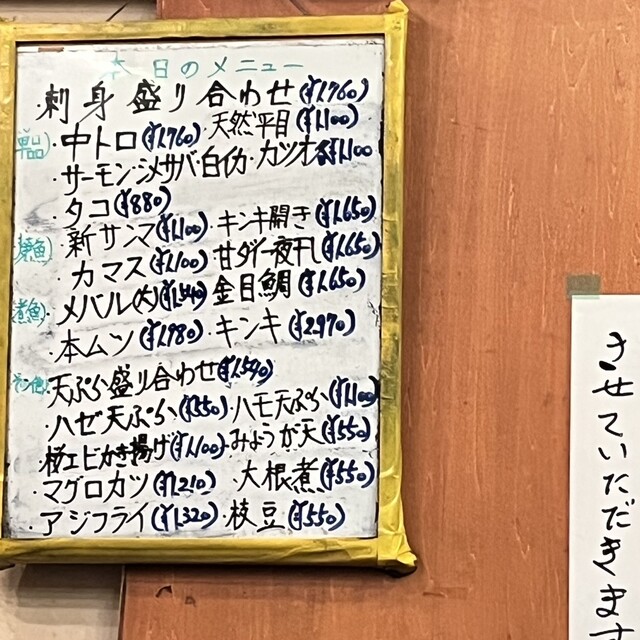 本日のメニュー
・刺身盛り合わせ(¥1,760)
単品・中トロ(¥1,760)・天然平目(¥1,100)
・サーモン・シメサバ・白イカ・カツオ各¥1,100
・タコ(¥880)
焼魚・新サンマ(¥1,100)・キンキ開き(¥1,650)
・カマス(¥1,100)・甘ダイ一夜干し(¥1,650)
煮魚・メバル(大)(¥1,540)・金目鯛(¥1,650)
・本ムツ(¥1,980)・キンキ(¥2,970)
その他・天ぷら盛り合わせ(¥1,540)
・ハゼ天ぷら(¥550)・ハモ天ぷら(¥1,100)
・桜エビかき揚げ(¥1,100)・みょうが天(¥550)
・マグロカツ(¥1,210)・大根煮(¥550)
・アジフライ(¥1,320)・枝豆(¥550)
させていただきます